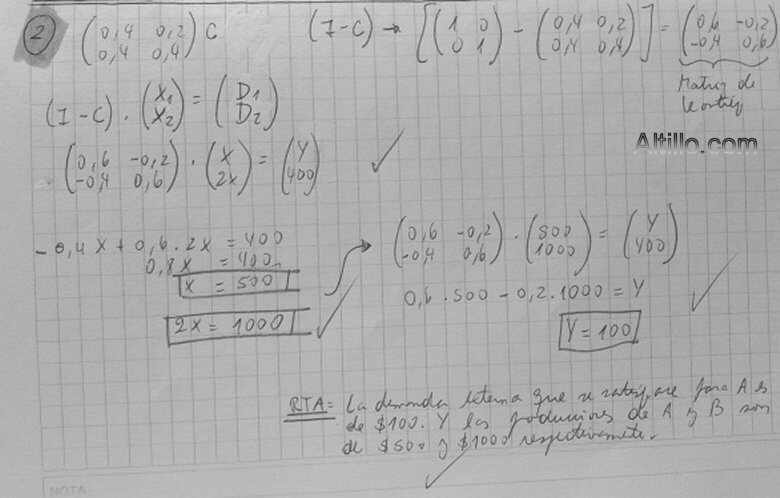 2) (0,4 0,2) C (I-C) → [(1 0) - (0,4 0,2)] = (0,6 -0,2)
(0,4 0,4) (0 1) (0,4 0,4) (-0,4 0,6)
Matriz de
Leontief
(I-C) . (X1) = (D1)
(X2) (D2)
Altillo.com
(0,6 -0,2) . (X) = (Y)
(-0,4 0,6) (2X) (400)
-0,4X + 0,6.2X = 400
0,8X = 400
X = 500
2X = 1000
(0,6 -0,2) . (500) = (Y)
(-0,4 0,6) (1000) (400)
0,6.500 - 0,2.1000 = Y
Y = 100
RTA= La demanda externa que se satisface para A es
de $100. Y las producciones de A y B son
de $500 y $1000 respectivamente.
NOTA